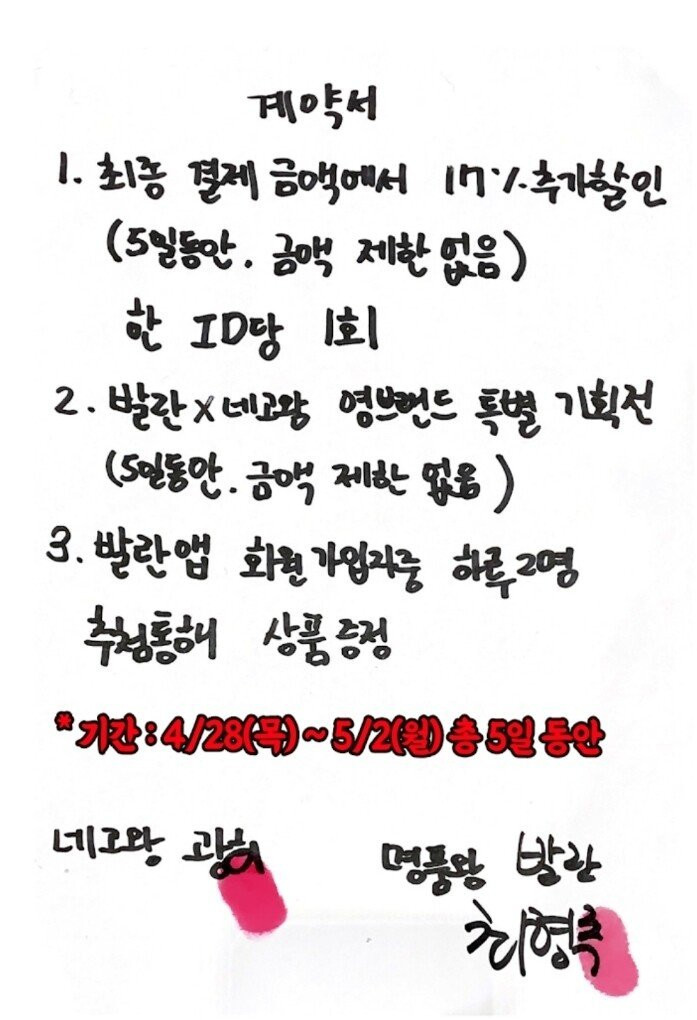 계약서
1. 최종 결제 금액에서 17% 추가할인
(5일동안. 금액 제한 없음)
한 ID당 1회
2. 발란x네고왕 영브랜드 특별 기획전
(5일동안. 금액 제한 없음)
3. 발란앱 회원가입자중 하루2명
추첨통해 상품증정
* 기간 : 4/28(목) ~ 5/2(월) 총 5일 동안
네고왕 광희
명품왕 발란
최형록